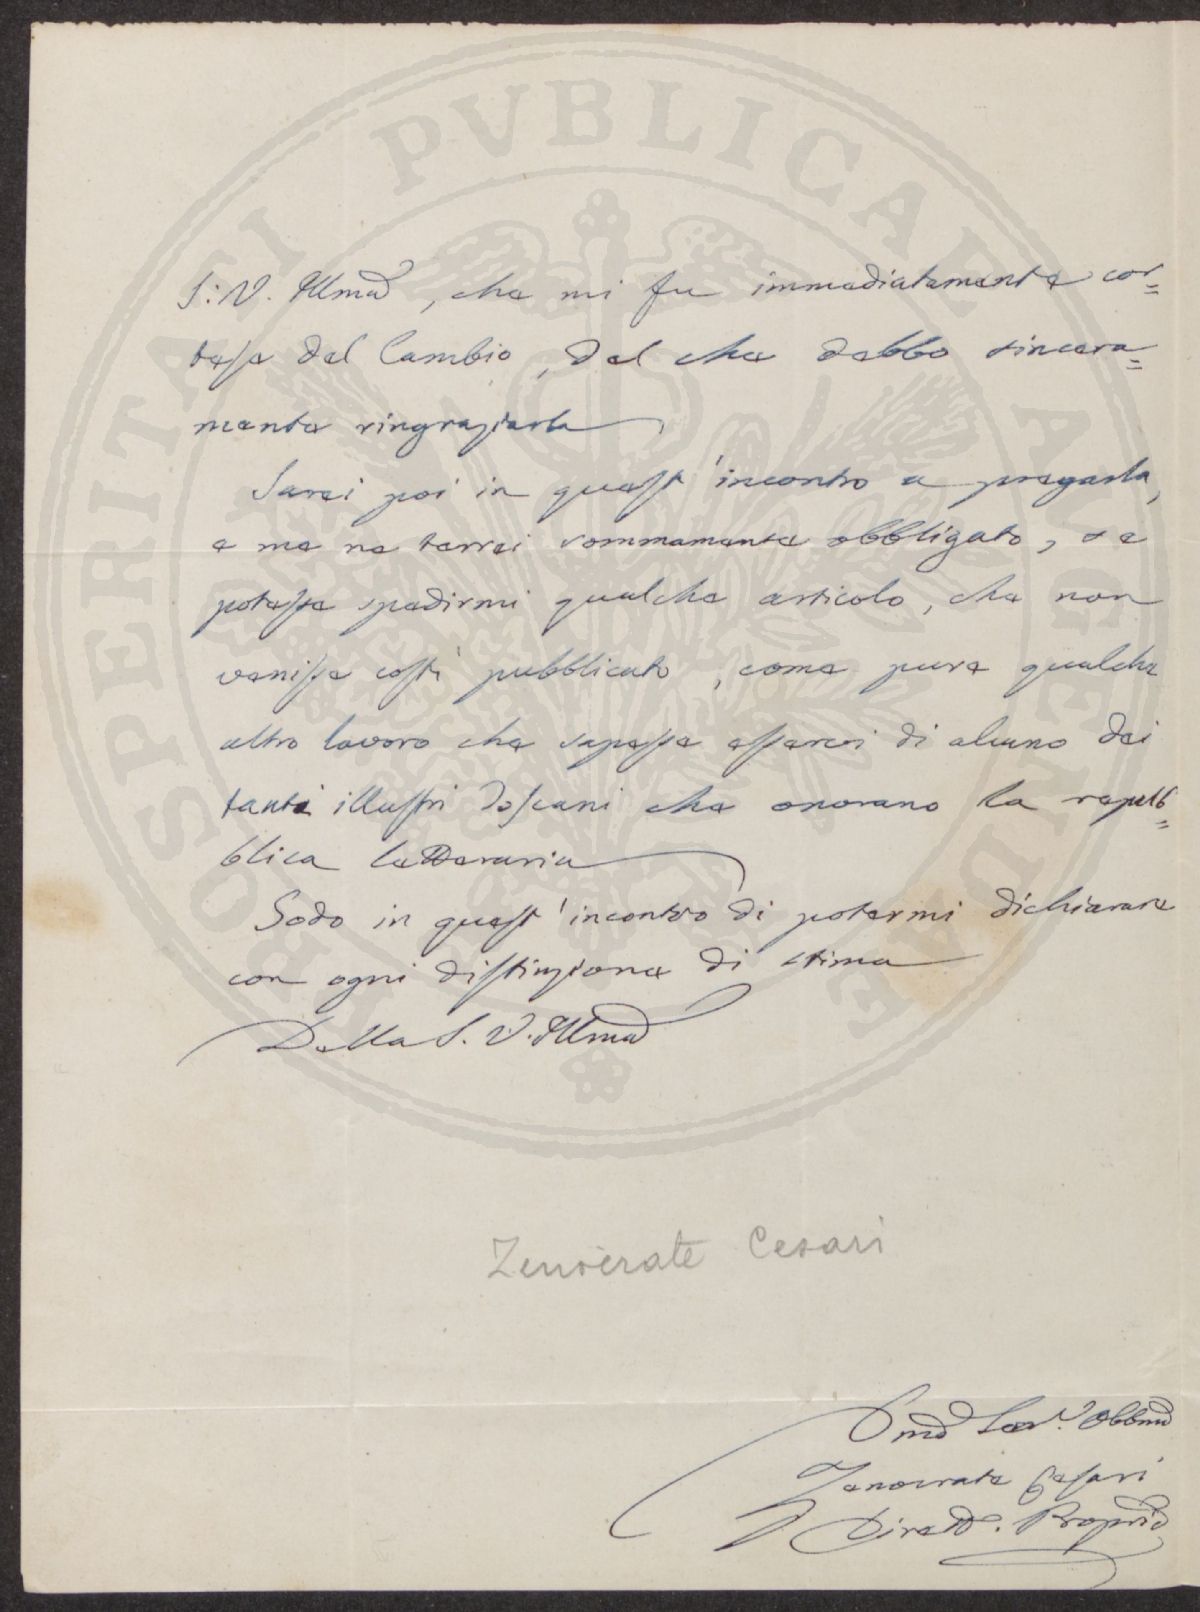 PROSPERITATI PVBLICAE AVGENDAE
S: V. Illma, che mi fu immediatamente cor=
tese del Cambio, del che debbo sincera=
mente ringraziarla
Sarei poi in quest'incontro a pregarla,
e me ne terrei sommamente obbligato, se
potesse spedirmi qualche articolo, che non
venisse costì pubblicato, come pure qualche
altro lavoro che sapesse esservi di alcuno dei
tanti illustri Toscani che onorano la repub=
blica letteraria
Godo in quest'incontro di potermi dichiarare
con ogni distinzione di stima
Della S. V. Illma
Zenocrate Cesari
Dmo Ser. Obbmo
Zenocrate Cesari
Dirett. Proprio